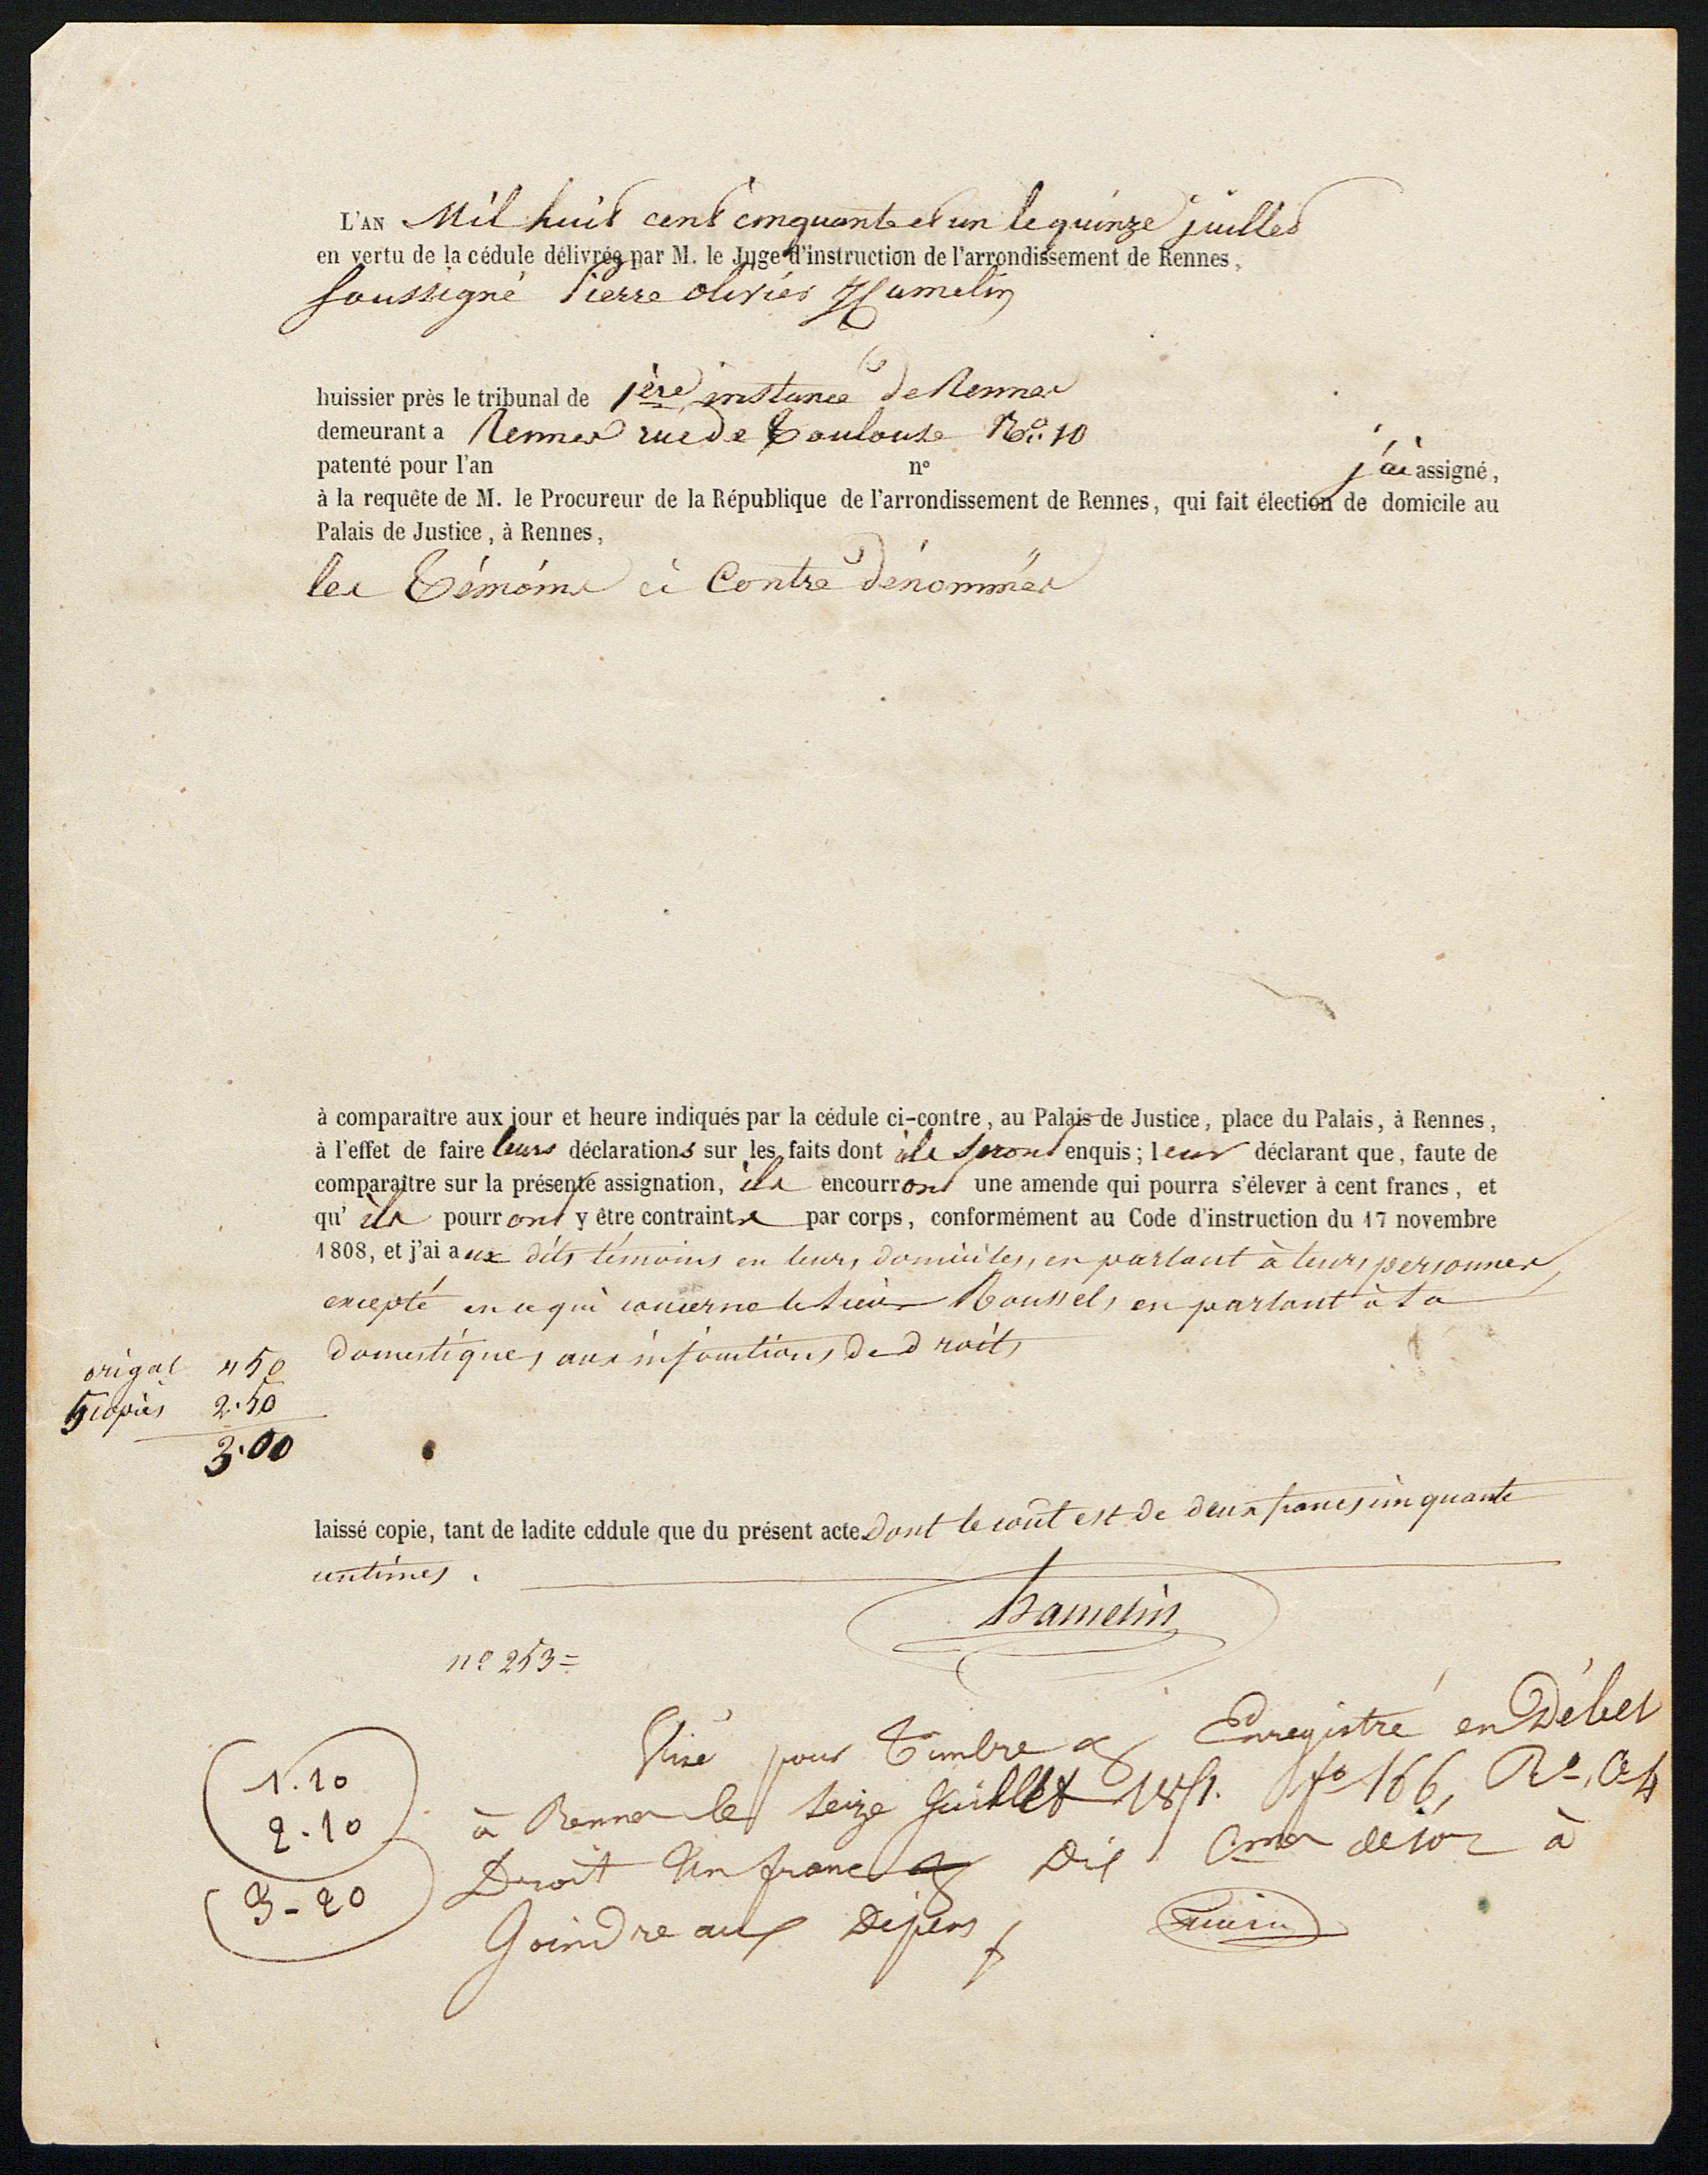 L'AN Mil huit cent cinquante et un le quinze juillet
en vertu de la cédule délivrée par M. le Juge d'instruction de l'arrondissement de Rennes,
soussigné Pierre olivier Hamelin
huissier près le tribunal de 1ère instance de Rennes
demeurant a Rennes rue de Toulouse No. 10
patenté pour l'an n° j'ai assigné,
à la requête de M. le Procureur de la République de l'arrondissement de Rennes, qui fait élection de domicile au
Palais de Justice, à Rennes,
les Témoins ci Contre dénommés
à comparaître aux jour et heure indiqués par la cédule ci-contre, au Palais de Justice, place du Palais, à Rennes,
à l'effet de faire leurs déclarations sur les faits dont ils seront enquis; leur déclarant que, faute de
comparaître sur la présente assignation, ils encourront une amende qui pourra s'élever à cent francs, et
qu' ils pourront y être contraints par corps, conformément au Code d'instruction du 17 novembre
1808, et j'ai aux dits témoins en leurs domiciles, en parlant à leurs personnes,
excepté en ce qui concerne le sieur Roussel, en parlant à sa
domestique, aux injonctions de droit,
origal " 50
5 copies 2.50
3.00
laissé copie, tant de ladite cddule que du présent acte. Dont le coût est de deux francs cinquante
centimes.
hamelin
n° 253=
Visé pour Timbre & Enregistré en Débet
à Rennes le seize Juillet 1851. f° 166, R°, C. 4
Droit Un franc Dix Cmes décime à
Joindre aux Dépens
1.10
2.10
3-20